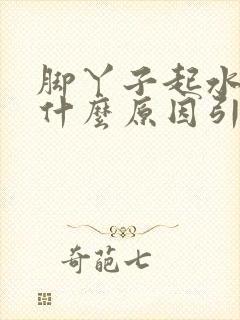 脚丫子起水
什麼原因引
奇葩七